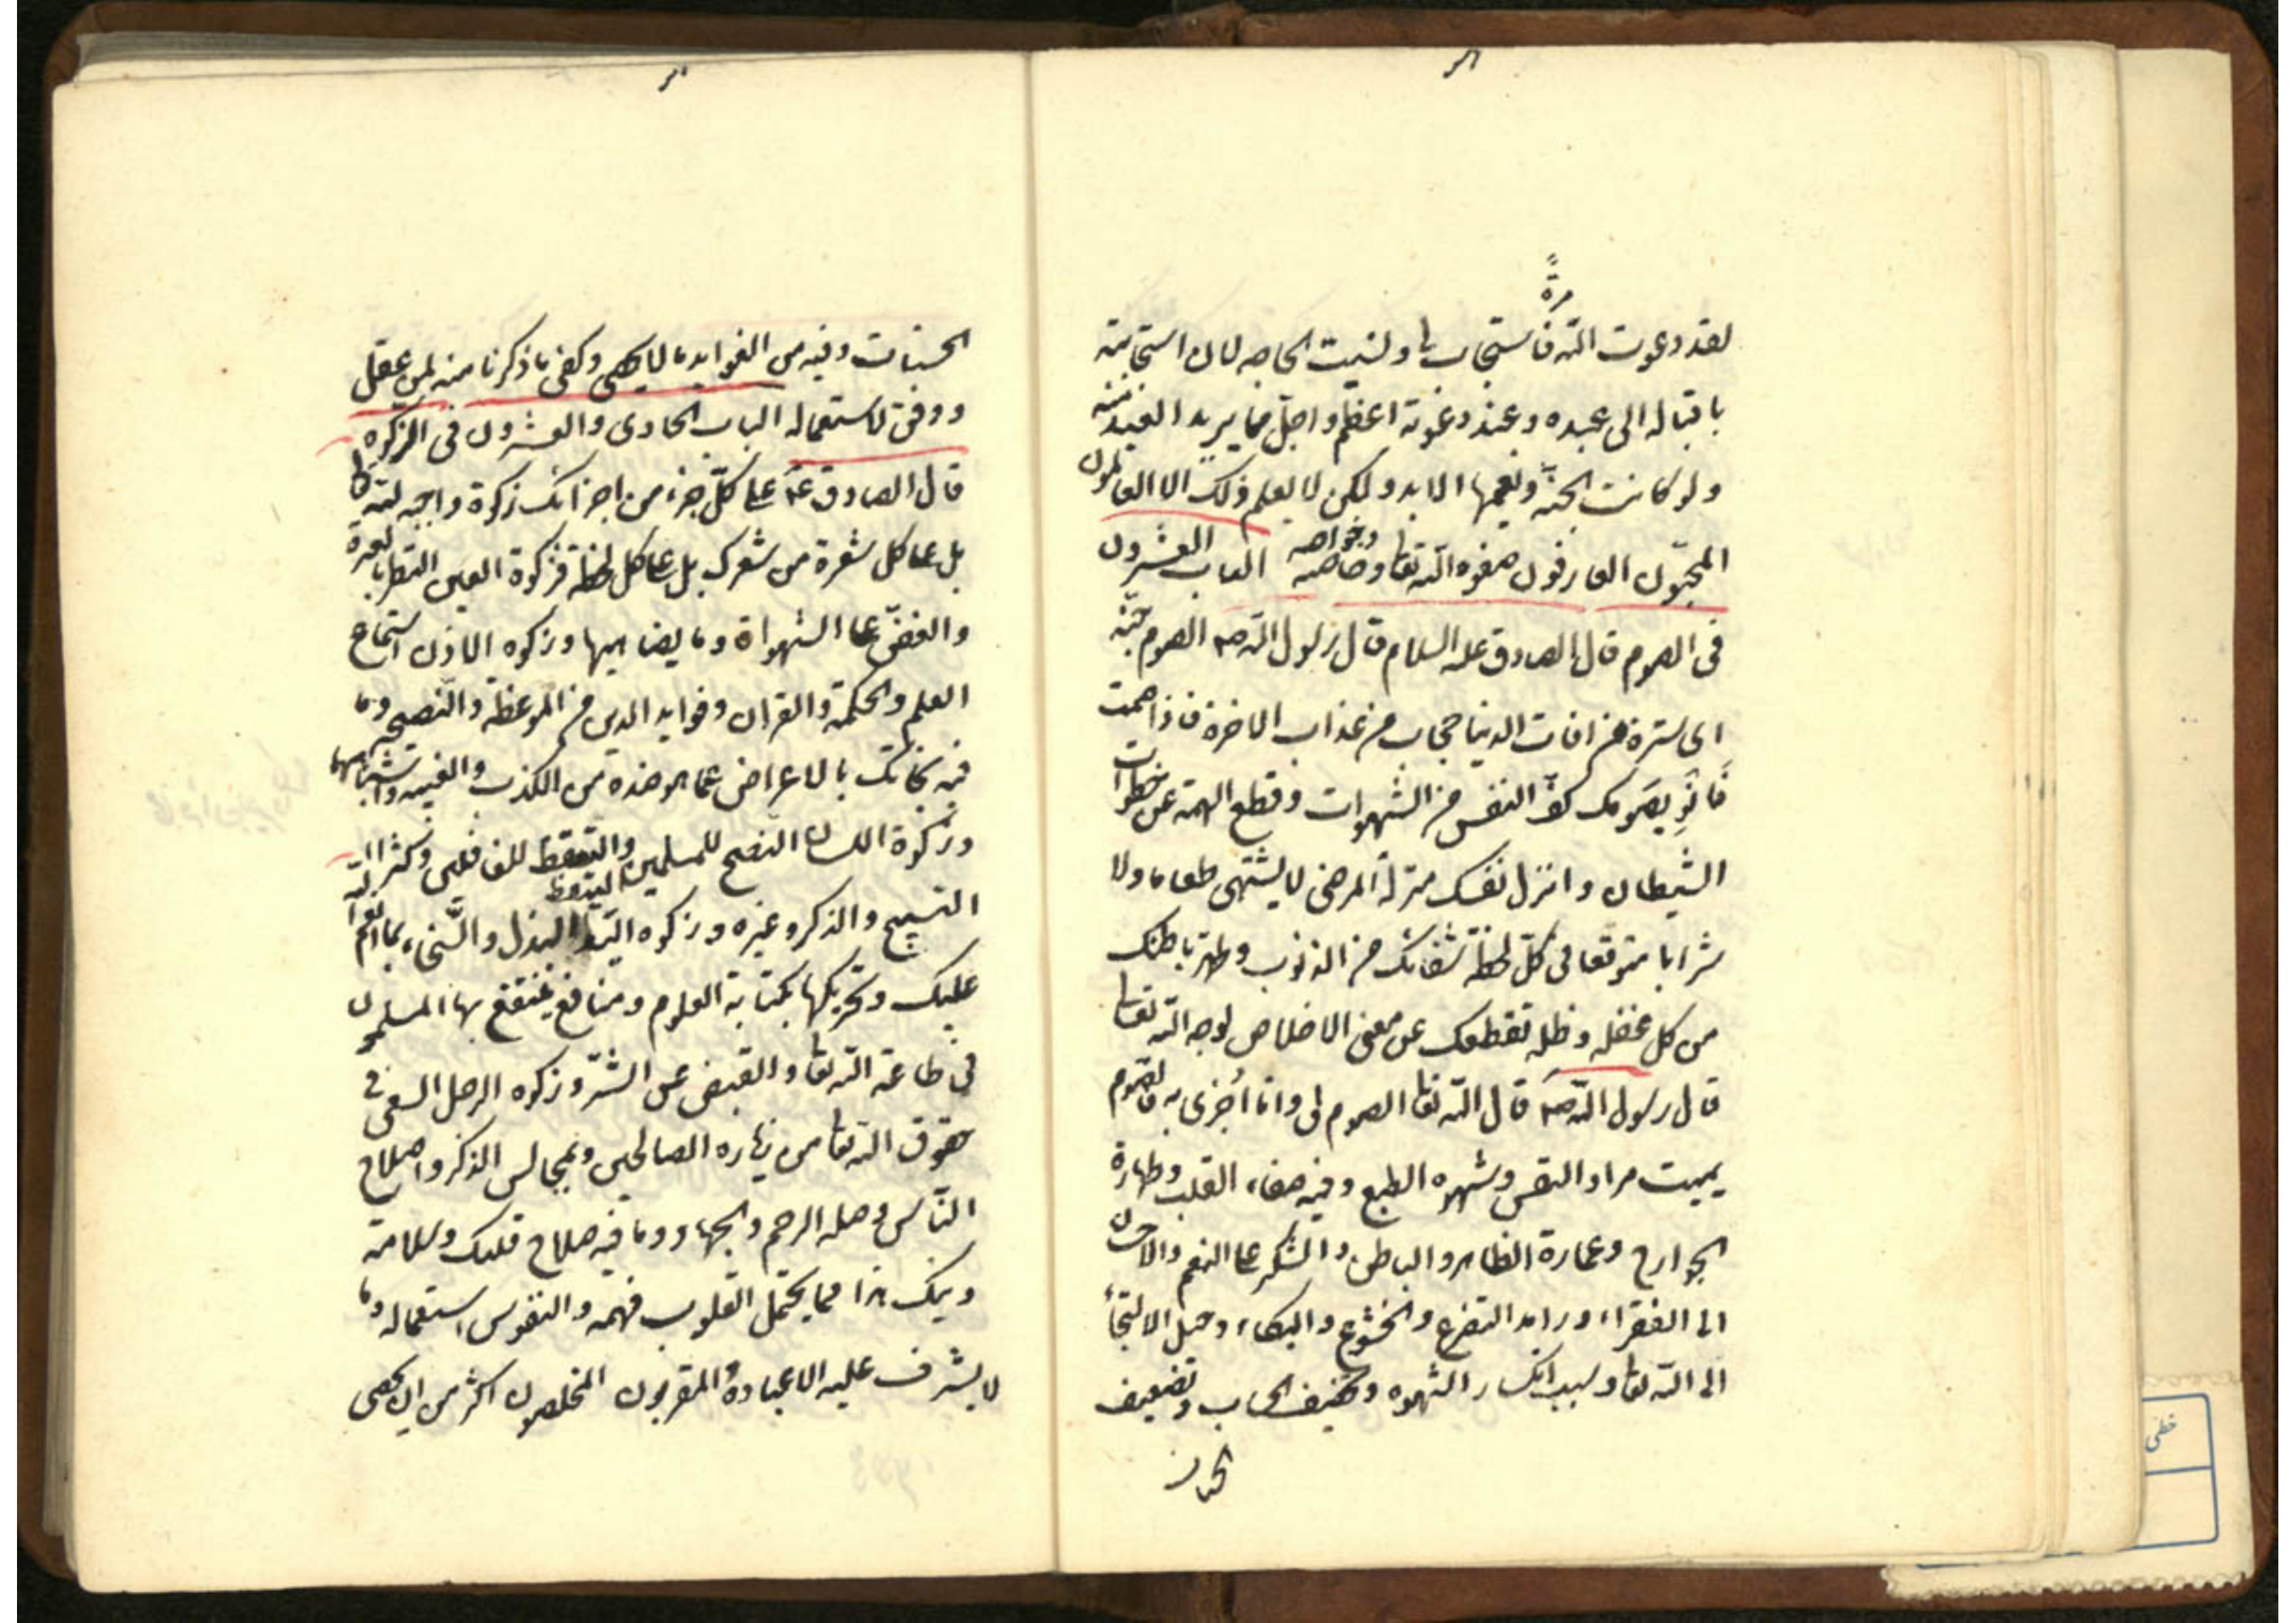 مرةً
لقد دعوت الله فاستجاب لی ونسیت الحاجه لان استجابته
باقباله الی عبده و عند دعوته اعظم و اجل مما یرید العبد منه
ولو کانت الجنة و نعیمها الابد ولکن لا یعلم ذلک الا العالمون
المحبّون العارفون صفوه الله تعالی وخاصه وخواصه الباب العشرون
فی الصوم قال الصادق علیه السلام قال رسول الله صه الصوم جنّة
ای ستره من افات الدنیا حجاب من عذاب الاخرة فاذا صمت
فَانوِ بصَومک کفّ النفس من الشهوات وقطع الهمة عن خطوات
الشیطان و انزل نفسک منزلة المرضی لا یشتهی طعاما ولا
شرابا متوقعا فی کلّ لحظة شفائک من الذنوب وطهر باطنک
من کل غفله و ظله تقطعک عن معنی الاخلاص لوجه الله تعالی
قال رسول الله صه قال الله تعا الصوم لی وانا اُجزی به فالصوم
یمیت مراد النفس وشهوه الطبع وفیه صفاء القلب وطهارة
الجوارح و عمارة الظاهر و الباطن و الشکر علی النعم والاحسان
الی الفقراء و زاید التضرع والخشوع والبکاء وحبل الالتجأ
الی الله تعالی وسبب انکسار الشهوه و تخفیف الحساب و تضعیف
الحسنات
الحسنات وفیه من الفواید ما لا یحصی وکفی ما ذکرنا منه لمن عقل
ووفق لاستعماله الباب الحادی والعشرون فی الزکوه
قال الصادق عم علی کلّ جزء من اجزائک زکوة واجبه لله تعالی
بل علی کل شعرة من شعرک بل علی کل لحظه فزکوة العین النظر بالعبرة
والغضّ عن الشهواة وما یضاهیها وزکوه الاذن استماع
العلم والحکمة والقران و فواید الدین من الموعظه والنصیحه وما
فیه نجاتک بالاعراض عما هو ضده من الکذب والغیبه واشباهها
وزکوة اللسان النصح للمسلمین والتیقظ للغافلین وکثرة
التسبیح والذکر وغیره وزکوه الید البذل والسّخاء بما انعم الله
علیک وتحریکها بکتابة العلوم ومنافع ینتفع بها المسلمون
فی طاعة الله تعا والقبض عن الشّرّ و زکوه الرجل السعی فی
حقوق الله تعالی من زیاره الصالحین ومجالس الذکر واصلاح
النّاس وصله الرحم والجهاد وما فیه صلاح قلبک وسلامة
دینک هذا مما یحتمل القلوب فهمه والنفوس استعماله وما
لا یشرف علیه الا عباده المقربون المخلصون اکثر من ان یحصی